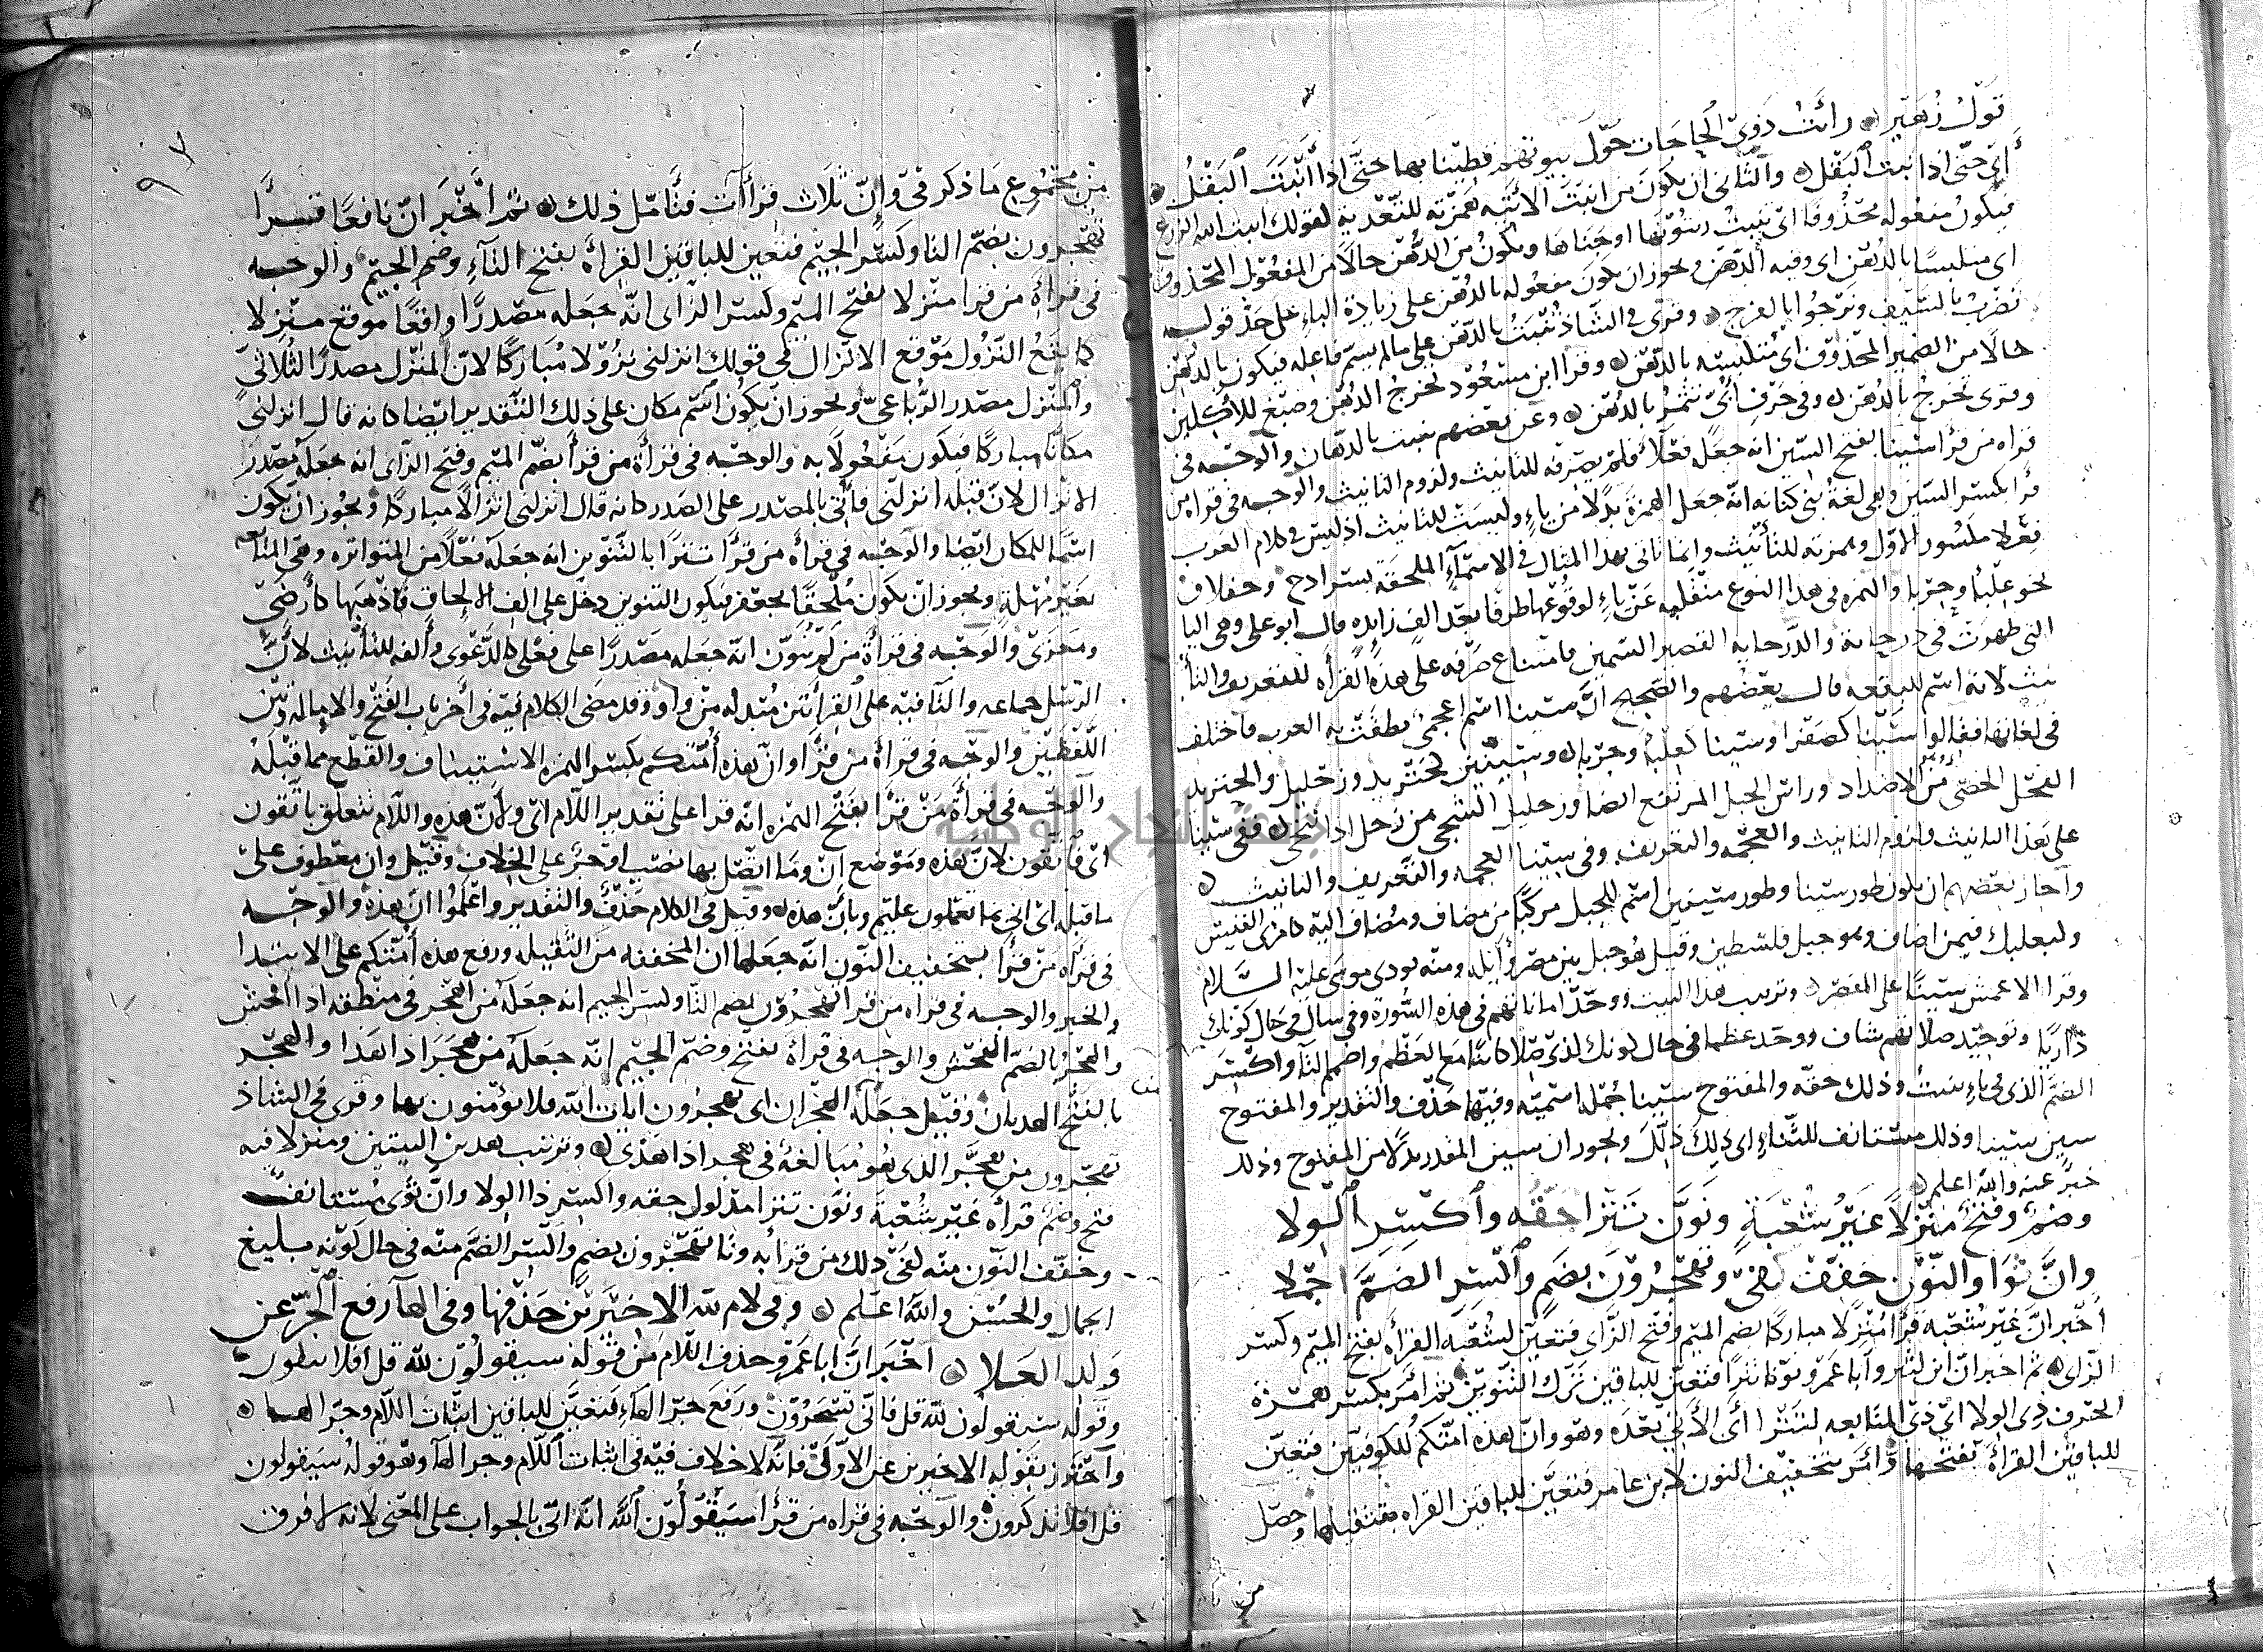 قول زهير رأيت ذوي الحاجات حول بيوتهم قطينا بها حتى اذا أنبت البقل
أي حتى اذا نبت البقل والثاني ان يكون من انبت الا انه همزته للتعدية كقولك انبت الله الزرع
فيكون مفعوله محذوفا اى تنبت زيتونها او جناها ويكون من الدهن حالا من المفعول المحذوف
اى ملتبسا بالدهن اى وفيه الدهن ويجوز ان يكون مفعوله بالدهن على زيادة الباء على حد قوله
نضرب بالسيف ونرجوا بالفرج وقرى في الشاذ تنبت بالدهن على ما لم يسم فاعله فيكون بالدهن
حالا من الضمير المحذوف اى ملتبسه بالدهن وقرا ابن مسعود تخرج الدهن وصبغ للآكلين
وقرى تخرج بالدهن وفي حرف أبي تثمر بالدهن وعن بعضهم تنبت بالدهان والوجه في
قراه من قرا سينا بفتح السين انه جعل فعلاء فلم يصرفه للتانيث ولزوم التانيث والوجه في قراه من
قرأ بكسر السين وهي لغة بني كنانه انه جعل الهمزة بدلا من ياء وليست للتانيث اذ ليس في كلام العرب
فعلا مكسور الاول وهمزته للتأنيث وانما تاتى هذا المثال في الاسماء الملحقة بسرداح وحملاق
نحو علبا وحربا والهمزه في هذا النوع منقلبه عن ياء لوقوعها طرفا بعد الف زايده قال ابو على وهي اليا
التي ظهرت في درحاية والدرحايه القصير السمين فامتناع صرفه على هذه القراه للتعريف والتأ
نيث لانه اسم للبقعه قال بعضهم والصحيح ان سينا اسم اعجمى نطقت به العرب فاختلف
في لغاتها فقالوا سينا كصفرا وسينا كعلبا وحربا وسينين كخنزيد وزحليل والخنزيد
الفحل الخصي من الاضداد وراس الجبل المرتفع ايضا وزحليل السجى من زحل اذا تنحى ففي سينا
على هذا التانيث ولزوم التانيث والعجمه والتعريف وفي سينا العجمه والتعريف والتانيث
وأجاز بعضهم ان يكون طور سينا وطور سينين اسم للجبل مركبا من مضاف ومضاف اليه كامرى القيس
ولبعلبك فيمن اضاف وهو جبل فلسطين وقيل هو جبل بين مصر وأيله ومنه نودى موسى عليه السلام
وقرا الاعمش سينا على القصر وترتيب هذا البيت ووحد اماناتهم في هذه السورة وفي سال في حال كونك
داريا وتوحيد صلاتهم شاف ووحد عظما في حال كونك لذى صلا كائنا مع العظم واضمم التا واكسر
الضم الذى في باء تنبت وذلك حقه والمفتوح سينا جمله اسميه وفيها حذف والتقدير والمفتوح
سين سينا وذلك مستانف للثناء اى ذلك ذلك ويجوز ان سين المقدر بدلا من المفتوح وذلك
خبر عنه والله اعلم
وضم وفتح منزلا غير شعبة ونون تترا حقه واكسر الولا
وان ثوا والنون خفف كفى وتهجرون بضم واكسر الضم اجملا
أخبر ان غير شعبه قرا منزلا مباركا بضم الميم وفتح الزاى فتعين لشعبه القراة بفتح الميم وكسر
الزاى ثم اخبر ان ابن كثير وأبا عمرو نونا تترا فتعين للباقين ترك التنوين ثم امر بكسر همزة
الحرف ذى الولا اى ذى المتابعه لتترا أى الاتي بعده وهو وان هذه امتكم للكوفيين فتعين
للباقين القراة بفتحها وأمر بتخفيف النون لابن عامر فتعين للباقين القراه بتثقيلها وحصل
من
٩٧
من مجموع ما ذكر في وان ثلاث قراآت فتأمل ذلك ثم أخبر ان نافعا قرأ
تهجرون بضم التا وكسر الجيم فتعين للباقين القراة بفتح التاء وضم الجيم والوجه
في قراة من قرا منزلا بفتح الميم وكسر الزاى انه جعله مصدرا واقعا موقع منزلا
كما يقع النزول موقع الانزال في قولك انزلني نزولا مباركا لان المنزل مصدر الثلاثي
والمنزل مصدر الرباعى ويجوز ان يكون اسم مكان على ذلك التقدير ايضا كانه قال انزلني
مكانا مباركا فيكون مفعولا به والوجه في قراة من قرأ بضم الميم وفتح الزاى انه جعله مصدر
الانزال لان قبله انزلني فأتى بالمصدر على الصدر كانه قال انزلني انزالا مباركا ويجوز ان يكون
اسما للمكان ايضا والوجه في قراة من قرأ تترا بالتنوين انه جعله فعلا من المتواتره وهي المتابعه
بغير مهلة ويجوز ان يكون ملحقا بجعفر فيكون التنوين دخل على الف الالحاق فأذهبها كأرطى
ومعزى والوجه في قراة من لم ينون انه جعله مصدرا على فعلى كالدعوى وألفه للتأنيث لان
الرسل جماعه والتا فيه على القراتين مبدله من واو وقد مضى الكلام فيه في أخر باب الفتح والاماله وبين
اللفظين والوجه في قراة من قرأ وان هذه أمتكم بكسر الهمزه الاستيناف والقطع مما قبله
والوجه في قراة من قرأ بفتح الهمزه انه قرا على تقدير اللام اى ولأن هذه واللام تتعلق باتقون
اى فاتقون لان هذه وموضع ان وما اتصل بها نصب او جر على الخلاف وقيل وان معطوف على
ما قبله اى اني بما تعملون عليم وبان هذه وقيل في الكلام حذف والتقدير واعلموا ان هذه والوجه
في قراه من قرأ بتخفيف النون انه جعلها ان المخففه من الثقيله ورفع هذه أمتكم على الابتدا
والخبر والوجه في قراه من قرا تهجرون بضم التا وكسر الجيم انه جعله من اهجر في منطقه اذا أفحش
والهجر بالضم الفحش والوجه في قراة بفتح وضم الجيم انه جعله من هجر اذا هذا والهجر
بالفتح الهذيان وقيل جعله الهجران اى تهجرون آيات الله فلا تؤمنون بها وقرى في الشاذ
تهجرون من هجر الذى هو مبالغة في هجر اذا هذى وترتيب هذين البيتين ومنزلا فيه
فتح وضم قراة غير شعبة ونون تترا مدلول حقه واكسر ذا الولا وان ثوى مستانف
وخفف النون منه كفى ذلك من قرا به وتا تهجرون بضم واكسر الضم منه في حال كونه بليغ
الجمال والحسن والله اعلم وفي لام لله الاخيرين حذفها وفي الهآ رفع الجر عن
ولد العلا أخبر ان ابا عمرو حذف اللام من قوله سيقولون لله قل افلا
وقوله سيقولون لله قل فانى تسحرون ورفع جر الهاء فتعين للباقين اثبات اللام وجر الهاء
وأحترز بقوله الاخيرين عن الاولى فانه لا خلاف فيه في اثبات اللام وجر الها وهو قوله سيقولون
قل افلا تذكرون والوجه في قراه من قرأ سيقولون الله انه اتى بالجواب على المعنى لانه لا فرق